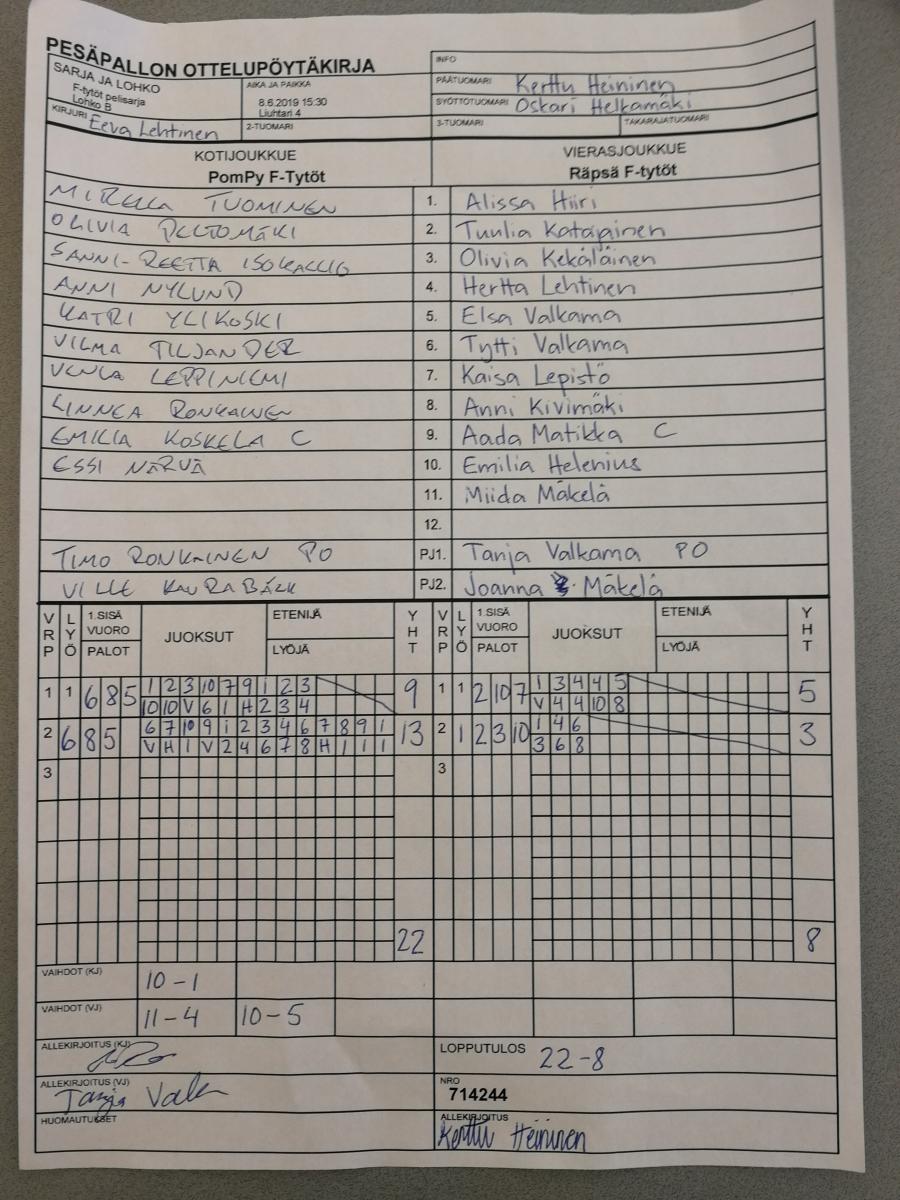 PESÄPALLON OTTELUPÖYTÄKIRJA
INFO
SARJA JA LOHKO
F-tytöt pelisarja
Lohko B
AIKA JA PAIKKA
8.6.2019 15:30
Liuhtari 4
PÄÄTUOMARI Kerttu Heininen
SYÖTTÖTUOMARI Oskari Helkamäki
KIRJURI Eeva Lehtinen
2-TUOMARI
3-TUOMARI
TAKARAJATUOMARI
KOTIJOUKKUE
PomPy F-Tytöt
VIERASJOUKKUE
Räpsä F-tytöt
MIRELLA TUOMINEN 1. Alissa Hiiri
OLIVIA PELTOMÄKI 2. Tuulia Katapainen
SANNI-REETTA ISOKALLIO 3. Olivia Kekäläinen
ANNI NYLUND 4. Hertta Lehtinen
KATRI YLIKOSKI 5. Elsa Valkama
VILMA TILJANDER 6. Tytti Valkama
VENLA LEPPINIEMI 7. Kaisa Lepistö
LINNEA RONKAINEN 8. Anni Kivimäki
EMILIA KOSKELA C 9. Aada Matikka C
ESSI NÄRVÄ 10. Emilia Helenius
11. Miida Mäkelä
12.
TIMO RONKAINEN PO PJ1. Tanja Valkama PO
VILLE KAURABÄCK PJ2. Joanna Mäkelä
VRP LYÖ 1.SISÄ VUORO PALOT JUOKSUT ETENIJÄ LYÖJÄ YHT VRP LYÖ 1.SISÄ VUORO PALOT JUOKSUT ETENIJÄ LYÖJÄ YHT
1 1 6 8 5 1 2 3 10 7 9 1 2 3 9 1 1 2 10 7 1 3 4 4 5 5
10 10 V 6 1 H 2 3 4 V 4 4 10 8
2 6 8 5 6 7 10 9 1 2 3 4 6 7 8 9 1 13 2 1 2 3 10 1 4 6 3
V H 1 V 2 4 6 7 8 H 1 1 1 3 6 8
3 3
22 8
VAIHDOT (KJ) 10-1
VAIHDOT (VJ) 11-4 10-5
ALLEKIRJOITUS (KJ)
LOPPUTULOS 22-8
ALLEKIRJOITUS (VJ) Tanja
NRO
714244
HUOMAUTUKSET
ALLEKIRJOITUS
Kerttu Heininen